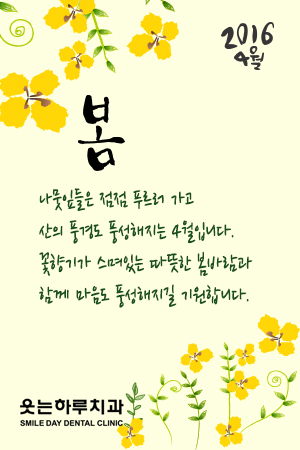 2016
4월
봄
나뭇잎들은 점점 푸르러 가고
산의 풍경도 풍성해지는 4월입니다.
꽃향기가 스며있는 따뜻한 봄바람과
함께 마음도 풍성해지길 기원합니다.
웃는하루치과
SMILE DAY DENTAL CLINIC